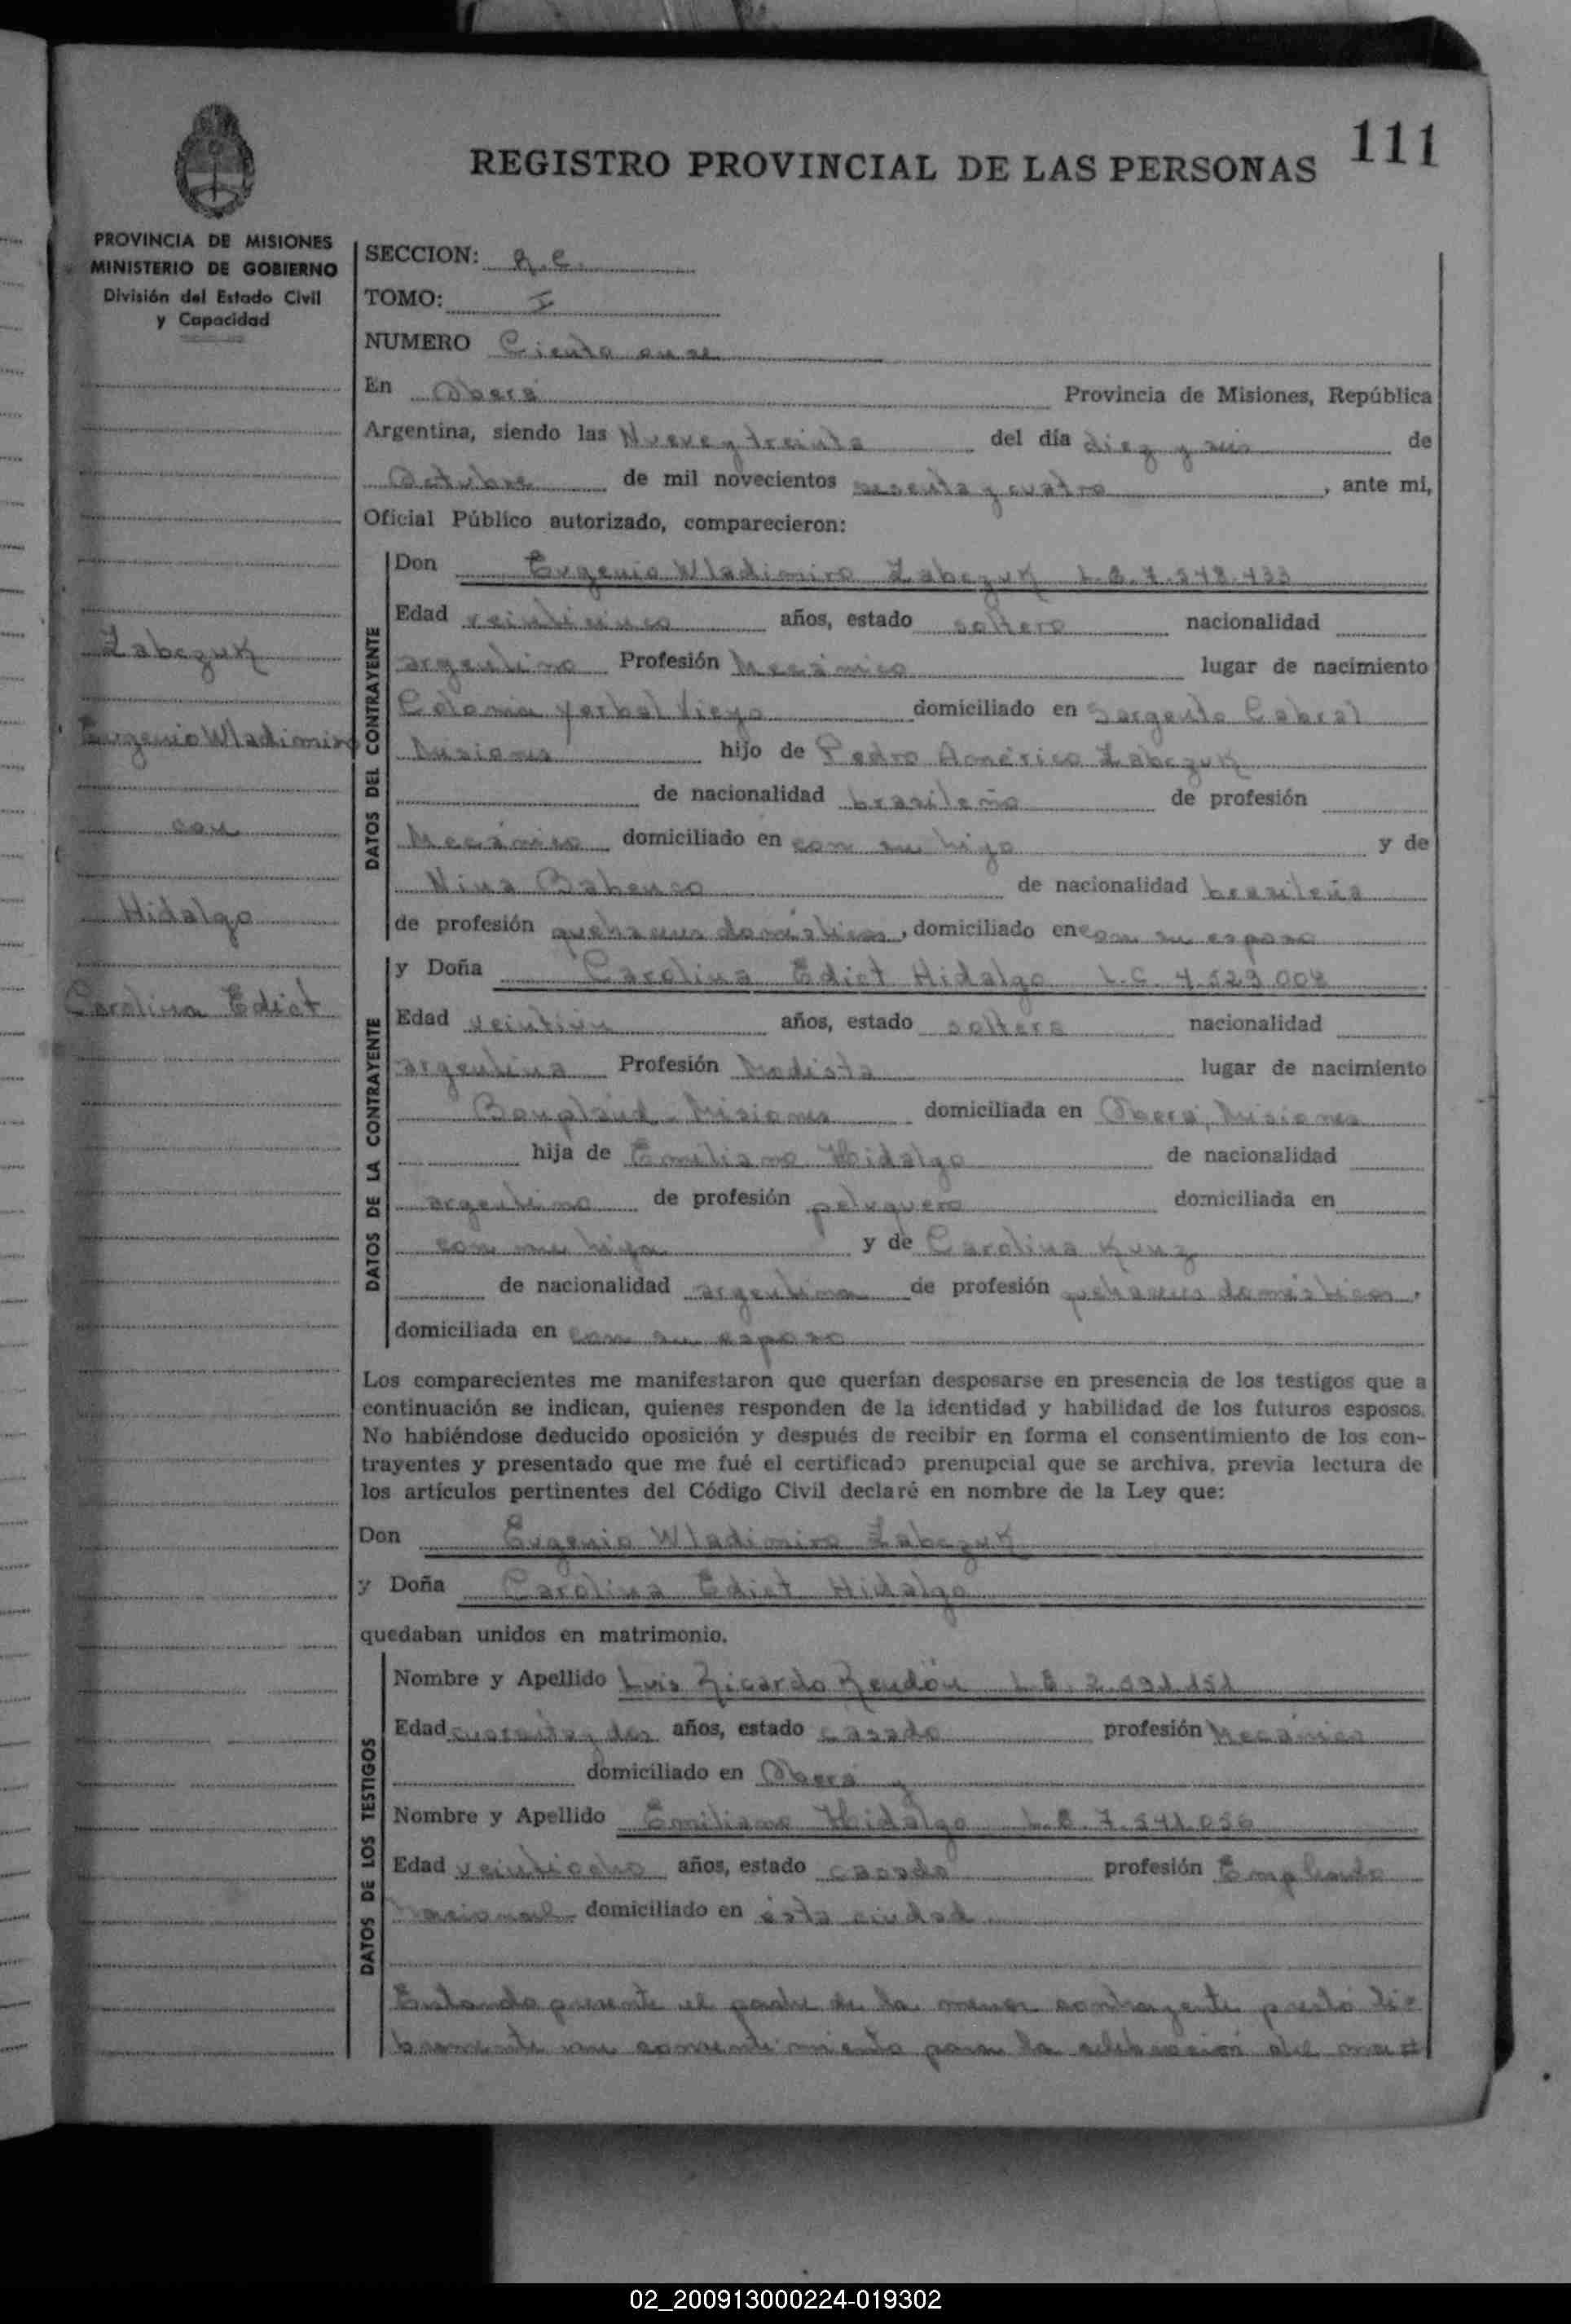 111
REGISTRO PROVINCIAL DE LAS PERSONAS
PROVINCIA DE MISIONES
MINISTERIO DE GOBIERNO
División del Estado Civil
y Capacidad
Zabczuk
Eugenio Wladimiro
con
Hidalgo
Carolina Edict
SECCION: R.C.
TOMO: I
NUMERO Ciento once
En Oberá Provincia de Misiones, República
Argentina, siendo las Nueve y treinta del día diez y seis de
Octubre de mil novecientos sesenta y cuatro, ante mi,
Oficial Público autorizado, comparecieron:
DATOS DEL CONTRAYENTE
Don Eugenio Wladimiro Zabczuk L.E. 7.548.433
Edad veinticinco años, estado soltero nacionalidad
argentino Profesión Mecánico lugar de nacimiento
Colonia Yerbal Viejo domiciliado en Sargento Cabral
Misiones hijo de Pedro Américo Zabczuk
de nacionalidad brasileño de profesión
Mecánico domiciliado en con su hijo y de
Nina Babenco de nacionalidad brasileña
de profesión quehaceres domésticos, domiciliado en con su esposo
DATOS DE LA CONTRAYENTE
y Doña Carolina Edict Hidalgo L.C. 4.529.008
Edad veintiún años, estado soltera nacionalidad
argentina Profesión Modista lugar de nacimiento
Bonpland - Misiones domiciliada en Oberá, Misiones
hija de Emiliano Hidalgo de nacionalidad
argentino de profesión peluquero domiciliada en
con su hija y de Carolina Kunz
de nacionalidad argentina de profesión quehaceres domésticos,
domiciliada en con su esposo
Los comparecientes me manifestaron que querían desposarse en presencia de los testigos que a
continuación se indican, quienes responden de la identidad y habilidad de los futuros esposos.
No habiéndose deducido oposición y después de recibir en forma el consentimiento de los con-
trayentes y presentado que me fué el certificado prenupcial que se archiva, previa lectura de
los artículos pertinentes del Código Civil declaré en nombre de la Ley que:
Don Eugenio Wladimiro Zabczuk
y Doña Carolina Edict Hidalgo
quedaban unidos en matrimonio.
DATOS DE LOS TESTIGOS
Nombre y Apellido Luis Ricardo Rendón L.E. 2.591.151
Edad cuarenta y dos años, estado casado profesión Mecánico
domiciliado en Oberá y
Nombre y Apellido Emiliano Hidalgo L.E. 7.541.056
Edad veintiocho años, estado casado profesión Empleado
Nacional domiciliado en ésta ciudad
Estando presente el padre de la menor contrayente prestó li=
bremente su consentimiento para la celebración del ma=
02_200913000224-019302